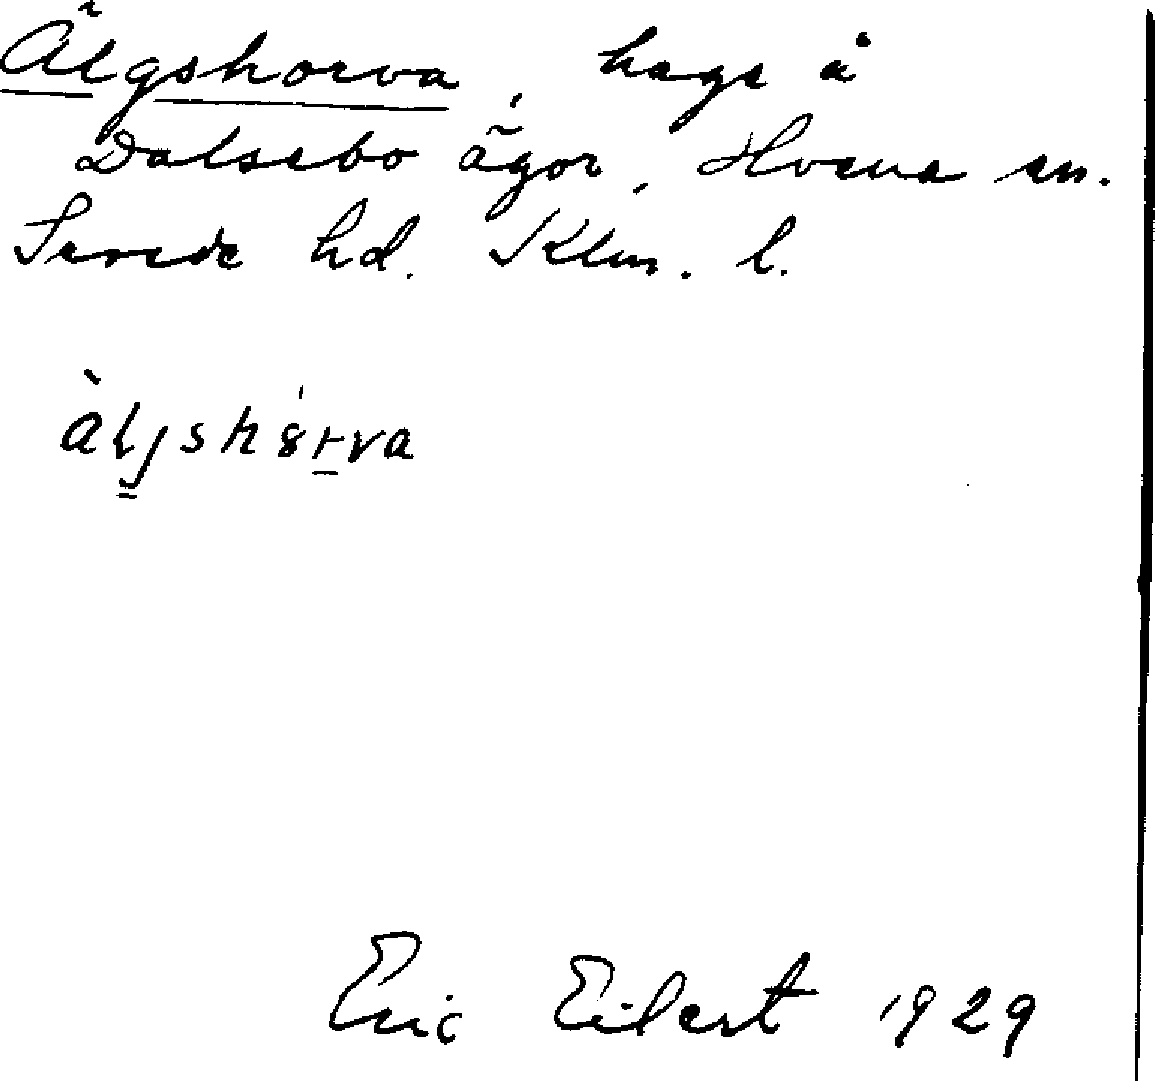 Älgshorva, hage å
Dalsebo ägor, Hvena sn.
Sevede hd. Klm. l.
äljshȯrva
Eric Eilert 1929